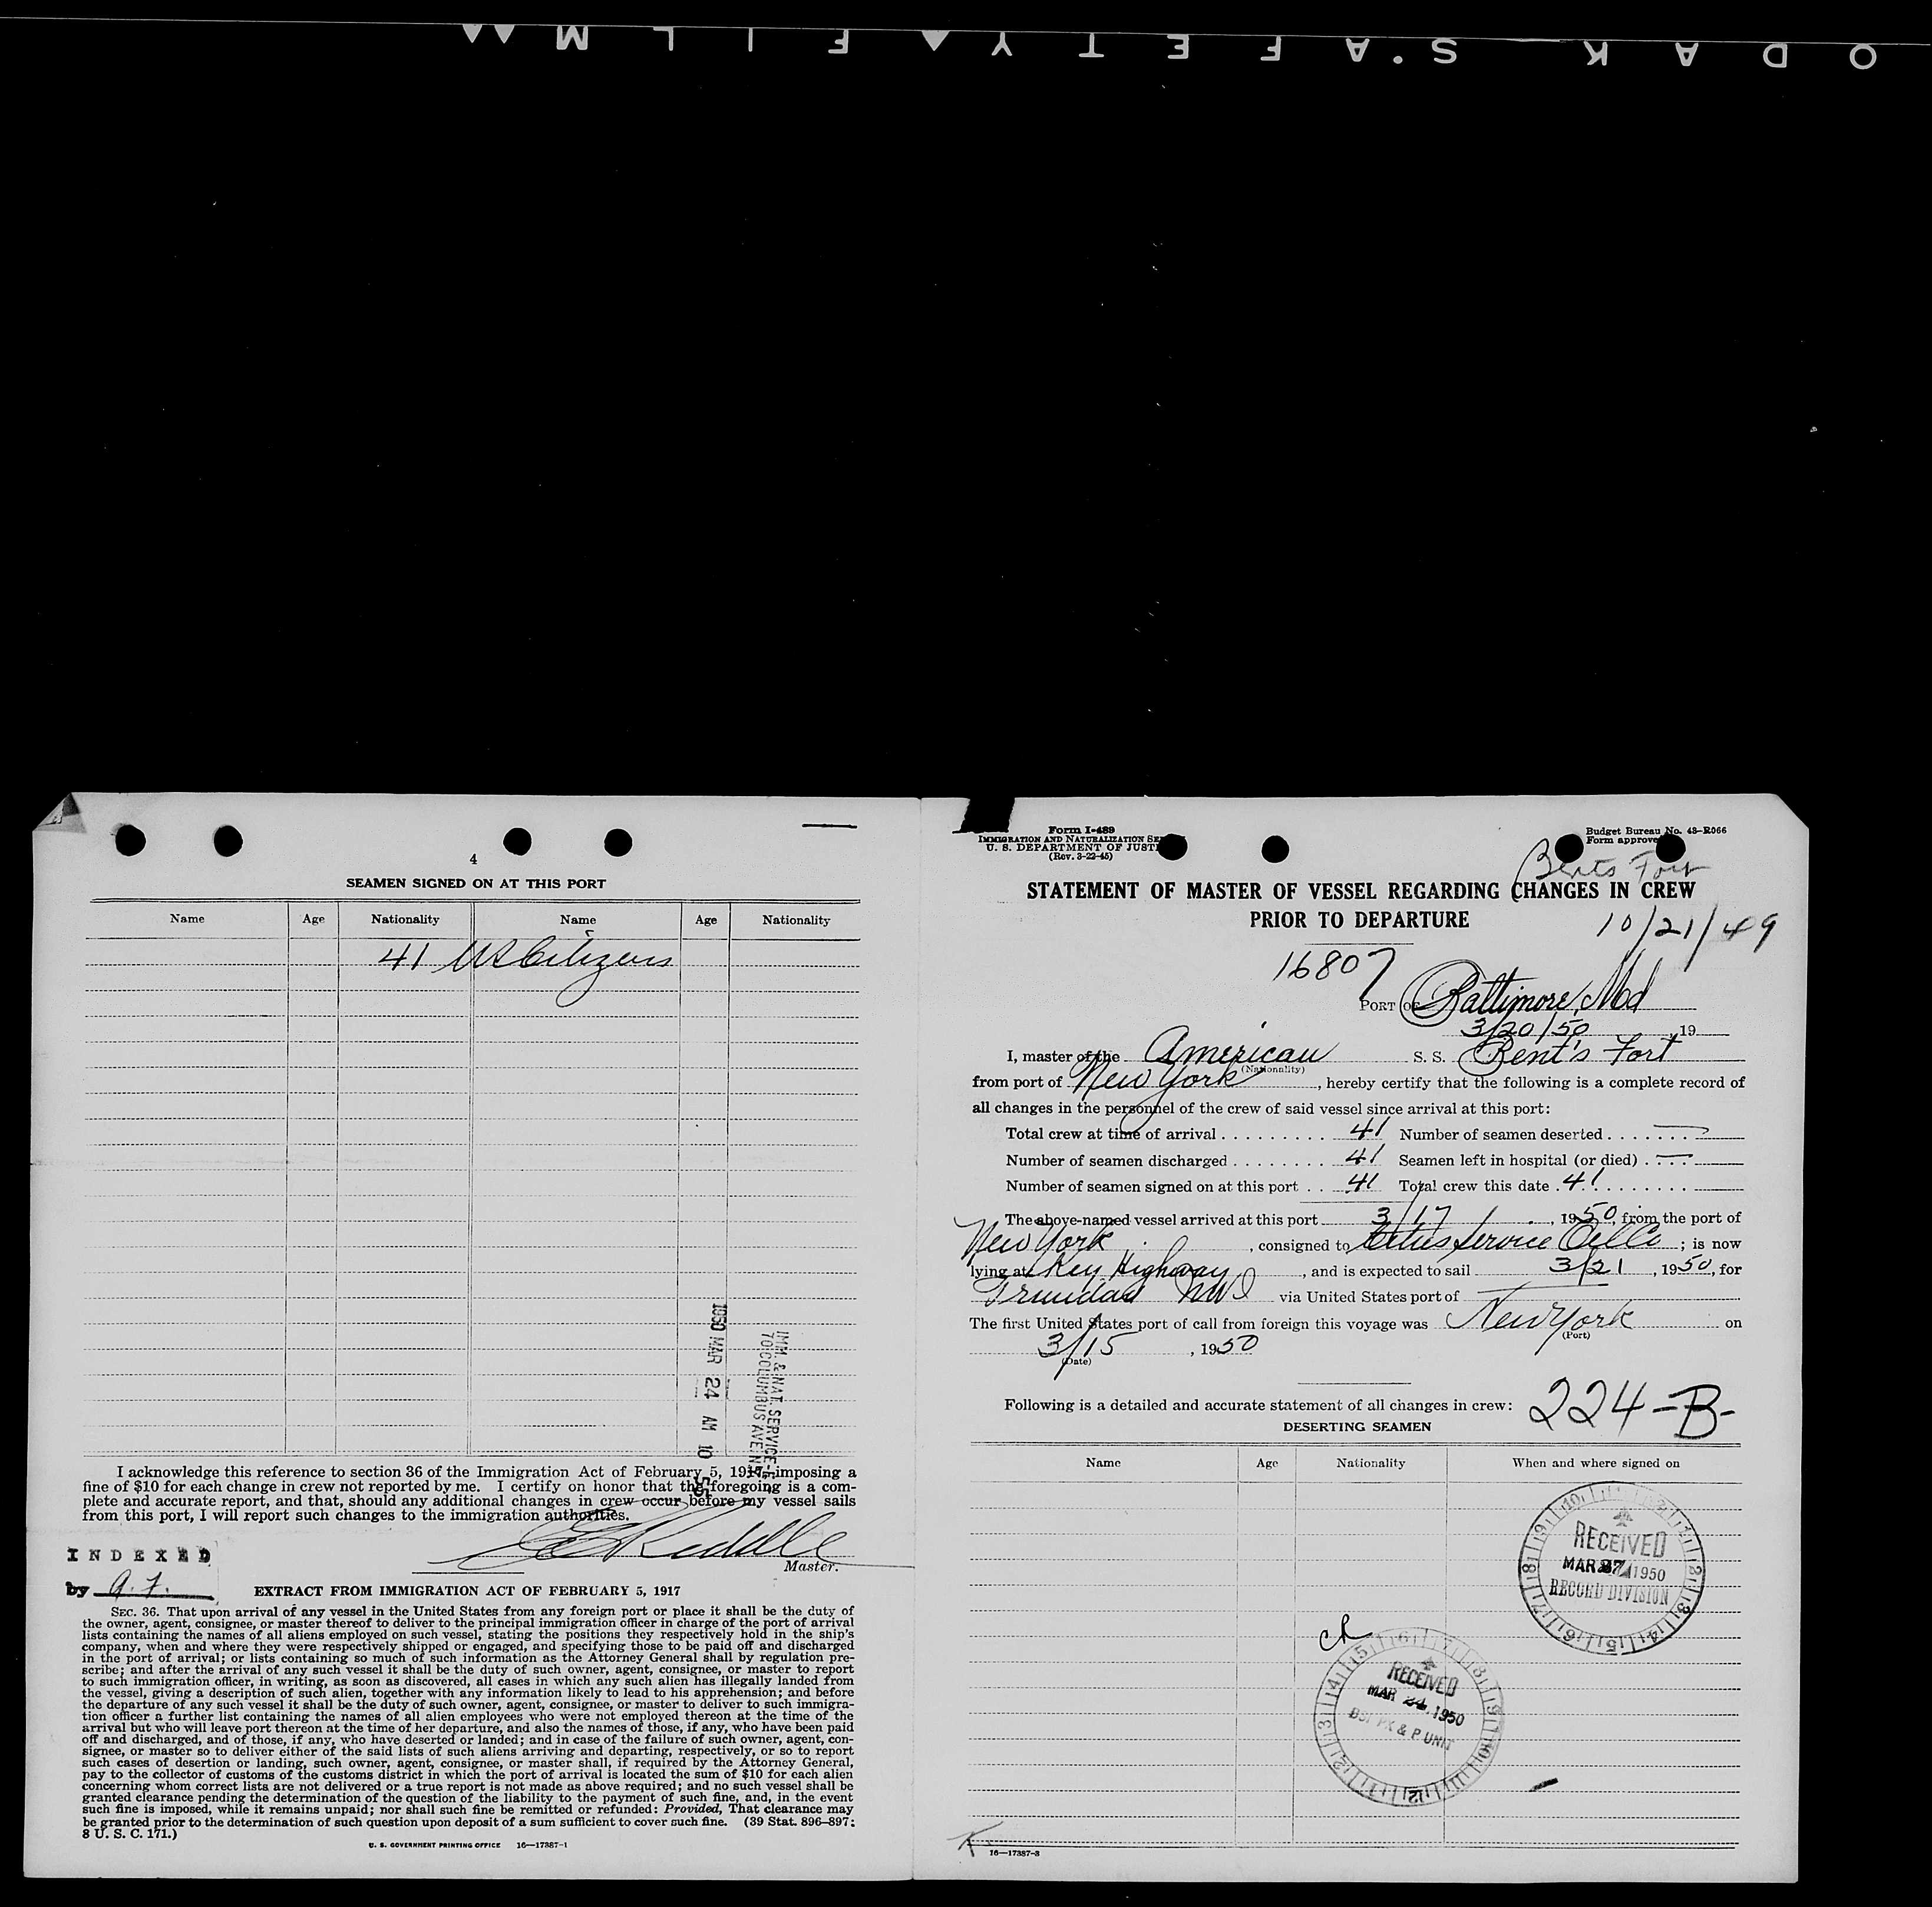 ODAK S'AFETY FILM
4
SEAMEN SIGNED ON AT THIS PORT
Name Age Nationality Name Age Nationality
41 US Citizens
1950 MAR 24 AM 10 55
IMM. & NAT. SERVICE
70 COLUMBUS AVE. N.Y.
I acknowledge this reference to section 36 of the Immigration Act of February 5, 1917, imposing a
fine of $10 for each change in crew not reported by me. I certify on honor that the foregoing is a com-
plete and accurate report, and that, should any additional changes in crew occur before my vessel sails
from this port, I will report such changes to the immigration authorities.
Master.
INDEXED
by
EXTRACT FROM IMMIGRATION ACT OF FEBRUARY 5, 1917
SEC. 36. That upon arrival of any vessel in the United States from any foreign port or place it shall be the duty of
the owner, agent, consignee, or master thereof to deliver to the principal immigration officer in charge of the port of arrival
lists containing the names of all aliens employed on such vessel, stating the positions they respectively hold in the ship's
company, when and where they were respectively shipped or engaged, and specifying those to be paid off and discharged
in the port of arrival; or lists containing so much of such information as the Attorney General shall by regulation pre-
scribe; and after the arrival of any such vessel it shall be the duty of such owner, agent, consignee, or master to report
to such immigration officer, in writing, as soon as discovered, all cases in which any such alien has illegally landed from
the vessel, giving a description of such alien, together with any information likely to lead to his apprehension; and before
the departure of any such vessel it shall be the duty of such owner, agent, consignee, or master to deliver to such immigra-
tion officer a further list containing the names of all alien employees who were not employed thereon at the time of the
arrival but who will leave port thereon at the time of her departure, and also the names of those, if any, who have been paid
off and discharged, and of those, if any, who have deserted or landed; and in case of the failure of such owner, agent, con-
signee, or master so to deliver either of the said lists of such aliens arriving and departing, respectively, or so to report
such cases of desertion or landing, such owner, agent, consignee, or master shall, if required by the Attorney General,
pay to the collector of customs of the customs district in which the port of arrival is located the sum of $10 for each alien
concerning whom correct lists are not delivered or a true report is not made as above required; and no such vessel shall be
granted clearance pending the determination of the question of the liability to the payment of such fine, and, in the event
such fine is imposed, while it remains unpaid; nor shall such fine be remitted or refunded: Provided, That clearance may
be granted prior to the determination of such question upon deposit of a sum sufficient to cover such fine. (39 Stat. 896–897;
8 U. S. C. 171.)
U. S. GOVERNMENT PRINTING OFFICE 16—17387-1
Form I-489
IMMIGRATION AND NATURALIZATION SE
U. S. DEPARTMENT OF JUSTI
(Rev. 3-22-45)
Budget Bureau No. 43-R066
Form approve
Bents Fort
STATEMENT OF MASTER OF VESSEL REGARDING CHANGES IN CREW
PRIOR TO DEPARTURE
10/21/49
16807
PORT OF Baltimore, Md
3/20/50, 19
I, master of the American S. S. Bent's Fort
(Nationality)
from port of New York, hereby certify that the following is a complete record of
all changes in the personnel of the crew of said vessel since arrival at this port:
Total crew at time of arrival 41 Number of seamen deserted —
Number of seamen discharged 41 Seamen left in hospital (or died) —
Number of seamen signed on at this port 41 Total crew this date 41
The above-named vessel arrived at this port 3/17, 1950, from the port of
New York, consigned to Cities Service Oil Co; is now
lying at Key Highway, and is expected to sail 3/21, 1950, for
Trinidad via United States port of —
The first United States port of call from foreign this voyage was New York on
(Port)
3/15, 1950
(Date)
Following is a detailed and accurate statement of all changes in crew: 224-B-
DESERTING SEAMEN
Name Age Nationality When and where signed on
RECEIVED
MAR 27 1950
RECORD DIVISION
CR
RECEIVED
MAR 24 1950
BSI PX & P UNIT
K
16—17387-3